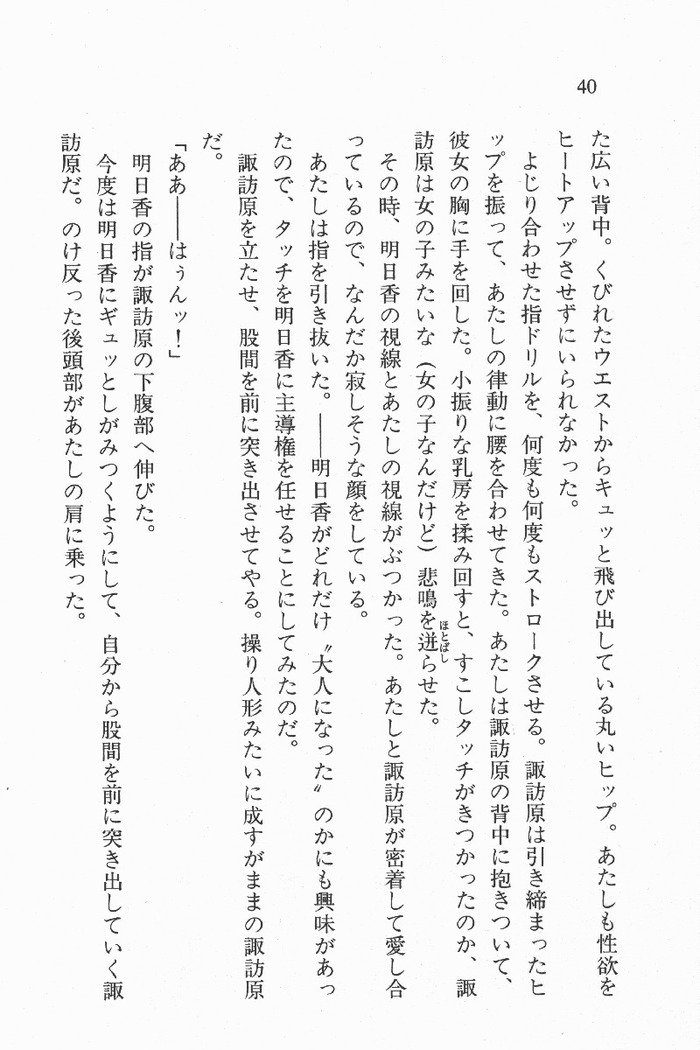 40
た広い背中。くびれたウエストからキュッと飛び出している丸いヒップ。あたしも性欲を
ヒートアップさせずにいられなかった。
よじり合わせた指ドリルを、何度も何度もストロークさせる。諏訪原は引き締まったヒ
ップを振って、あたしの律動に腰を合わせてきた。あたしは諏訪原の背中に抱きついて、
彼女の胸に手を回した。小振りな乳房を揉み回すと、すこしタッチがきつかったのか、諏
訪原は女の子みたいな（女の子なんだけど）悲鳴を迸らせた。
ほとばし
その時、明日香の視線とあたしの視線がぶつかった。あたしと諏訪原が密着して愛し合
っているので、なんだか寂しそうな顔をしている。
あたしは指を引き抜いた。――明日香がどれだけ〝大人になった〟のかにも興味があっ
たので、タッチを明日香に主導権を任せることにしてみたのだ。
諏訪原を立たせ、股間を前に突き出させてやる。操り人形みたいに成すがままの諏訪原
だ。
「ああ――はぅんッ！」
明日香の指が諏訪原の下腹部へ伸びた。
今度は明日香にギュッとしがみつくようにして、自分から股間を前に突き出していく諏
訪原だ。のけ反った後頭部があたしの肩に乗った。